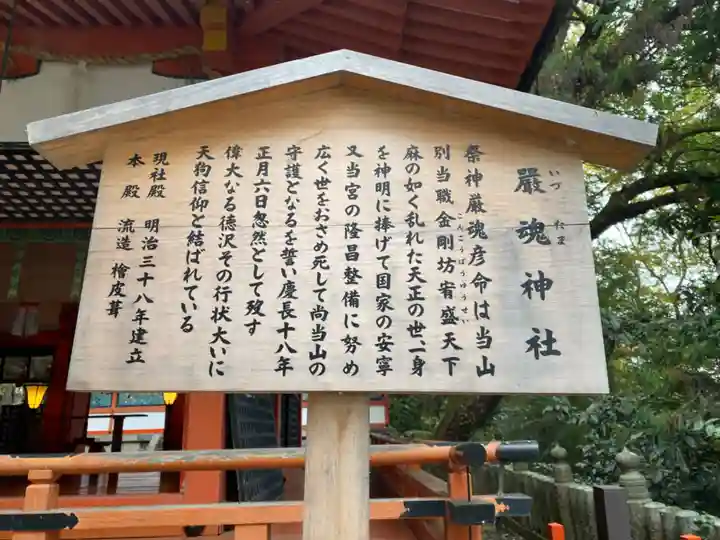 嚴魂神社
いづたま
祭神嚴魂彦命は当山
別当職金剛坊宥盛天下
こんごうぼうゆうせい
麻の如く乱れた天正の世、一身
を神明に捧げて国家の安寧
又当宮の隆昌整備に努め
広く世をおさめ死して尚当山の
守護となるを誓い慶長十八年
正月六日忽然として歿す
偉大なる徳沢その行状大いに
天狗信仰と結ばれている
現社殿 明治三十八年建立
本殿 流造 檜皮葺